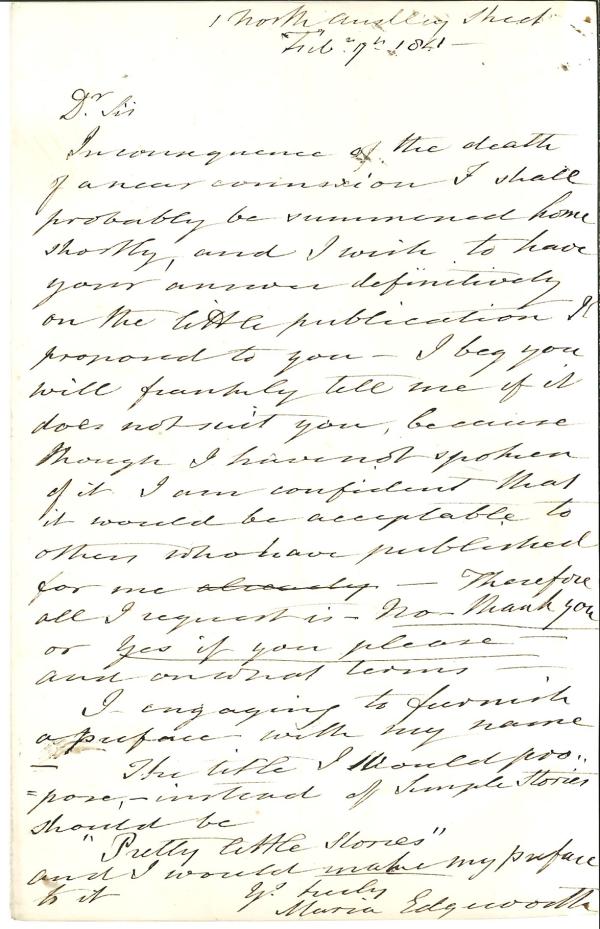 1 North Audley Street
Feb.y 7th 1841 –
Dr. Sir
In consequence of the death
of a near connexion I shall
probably be summoned home
shortly, and I wish to have
your answer definitively
on the little publication I
proposed to you – I beg you
will frankly tell me if it
does not suit you, because
though I have not spoken
of it I am confident that
it would be acceptable to
others who have published
for me already – Therefore
all I request is – No – thank you
or Yes if you please –
and on what terms –
I engaging to furnish
a preface with my name
– The title I would pro..
=pose, – instead of Simple Stories
should be
"Pretty little Stories"
and I would make my preface
to it
Yr. truly
Maria Edgeworth